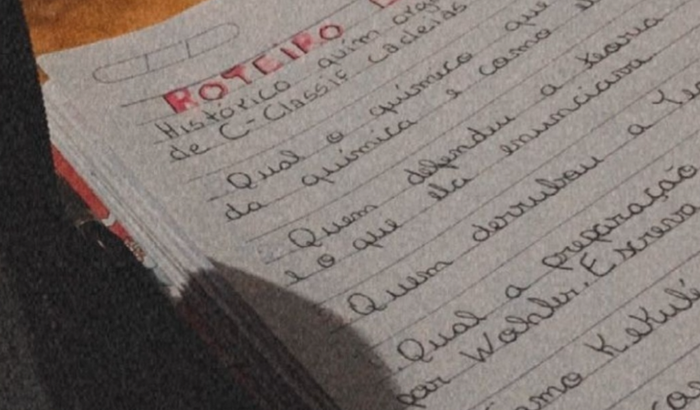 ROTEIRO
Histórico quím org
de C-Classif cadeias
Qual o químico que
da química e como
Quem defendeu a teoria
e o que ela enunciava
Quem derrubou a
Qual a preparação
por Wohler. Escreva
Como Kekulé